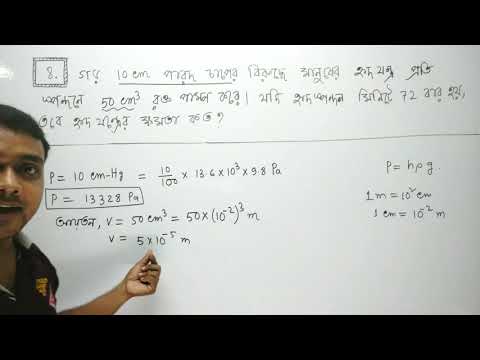 8. গড় 10 cm পারদ চাপের বিরুদ্ধে মানুষের হৃদযন্ত্র প্রতি
স্পন্দনে 50 cm³ রক্ত পাম্প করে। যদি হৃদস্পন্দন মিনিটে 72 বার হয়,
তবে হৃদযন্ত্রের ক্ষমতা কত?
P = 10 cm-Hg = 10/100 × 13.6 × 10³ × 9.8 Pa
P = 13328 Pa
আয়তন, V = 50 cm³ = 50 × (10⁻²)³ m
V = 5 × 10⁻⁵ m
P = hρg.
1 m = 10² cm
1 cm = 10⁻² m